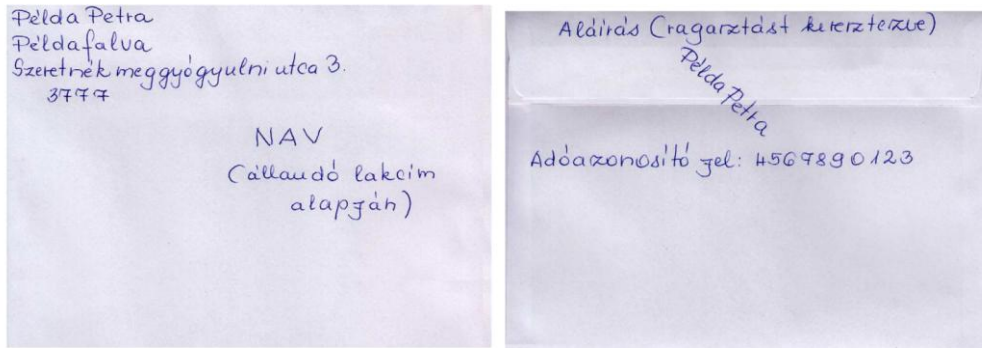 Példa Petra
Példafalva
Szeretnék meggyógyulni utca 3.
3777
NAV
(állandó lakcím
alapján)
Aláírás (ragasztást keresztezve)
Példa Petra
Adóazonosító jel: 4567890123